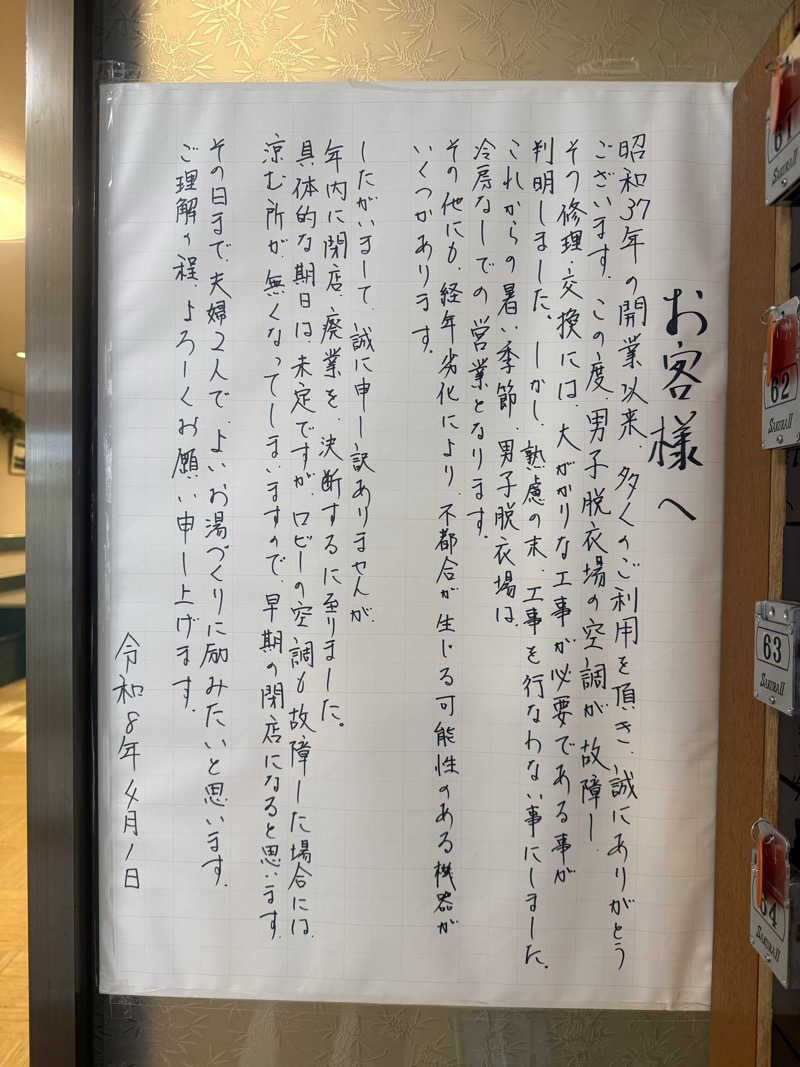 お客様へ
昭和37年の開業以来、多くのご利用を頂き、誠にありがとう
ございます。この度、男子脱衣場の空調が故障し
その修理・交換には、大がかりな工事が必要である事が
判明しました。しかし、熟慮の末、工事を行なわない事にしました。
これからの暑い季節、男子脱衣場は、
冷房なしでの営業となります。
その他にも、経年劣化により、不都合が生じる可能性のある機器が
いくつかあります。
したがいまして、誠に申し訳ありませんが、
年内に閉店、廃業を、決断するに至りました。
具体的な期日は未定ですが、ロビーの空調も故障した場合には、
涼む所が、無くなってしまいますので、早期の閉店になると思います。
その日まで、夫婦2人で、よいお湯づくりに励みたいと思います。
ご理解の程、よろしくお願い申し上げます。
令和8年4月1日
61
SAKURA II
62
SAKURA II
63
SAKURA II
64
SAKURA II